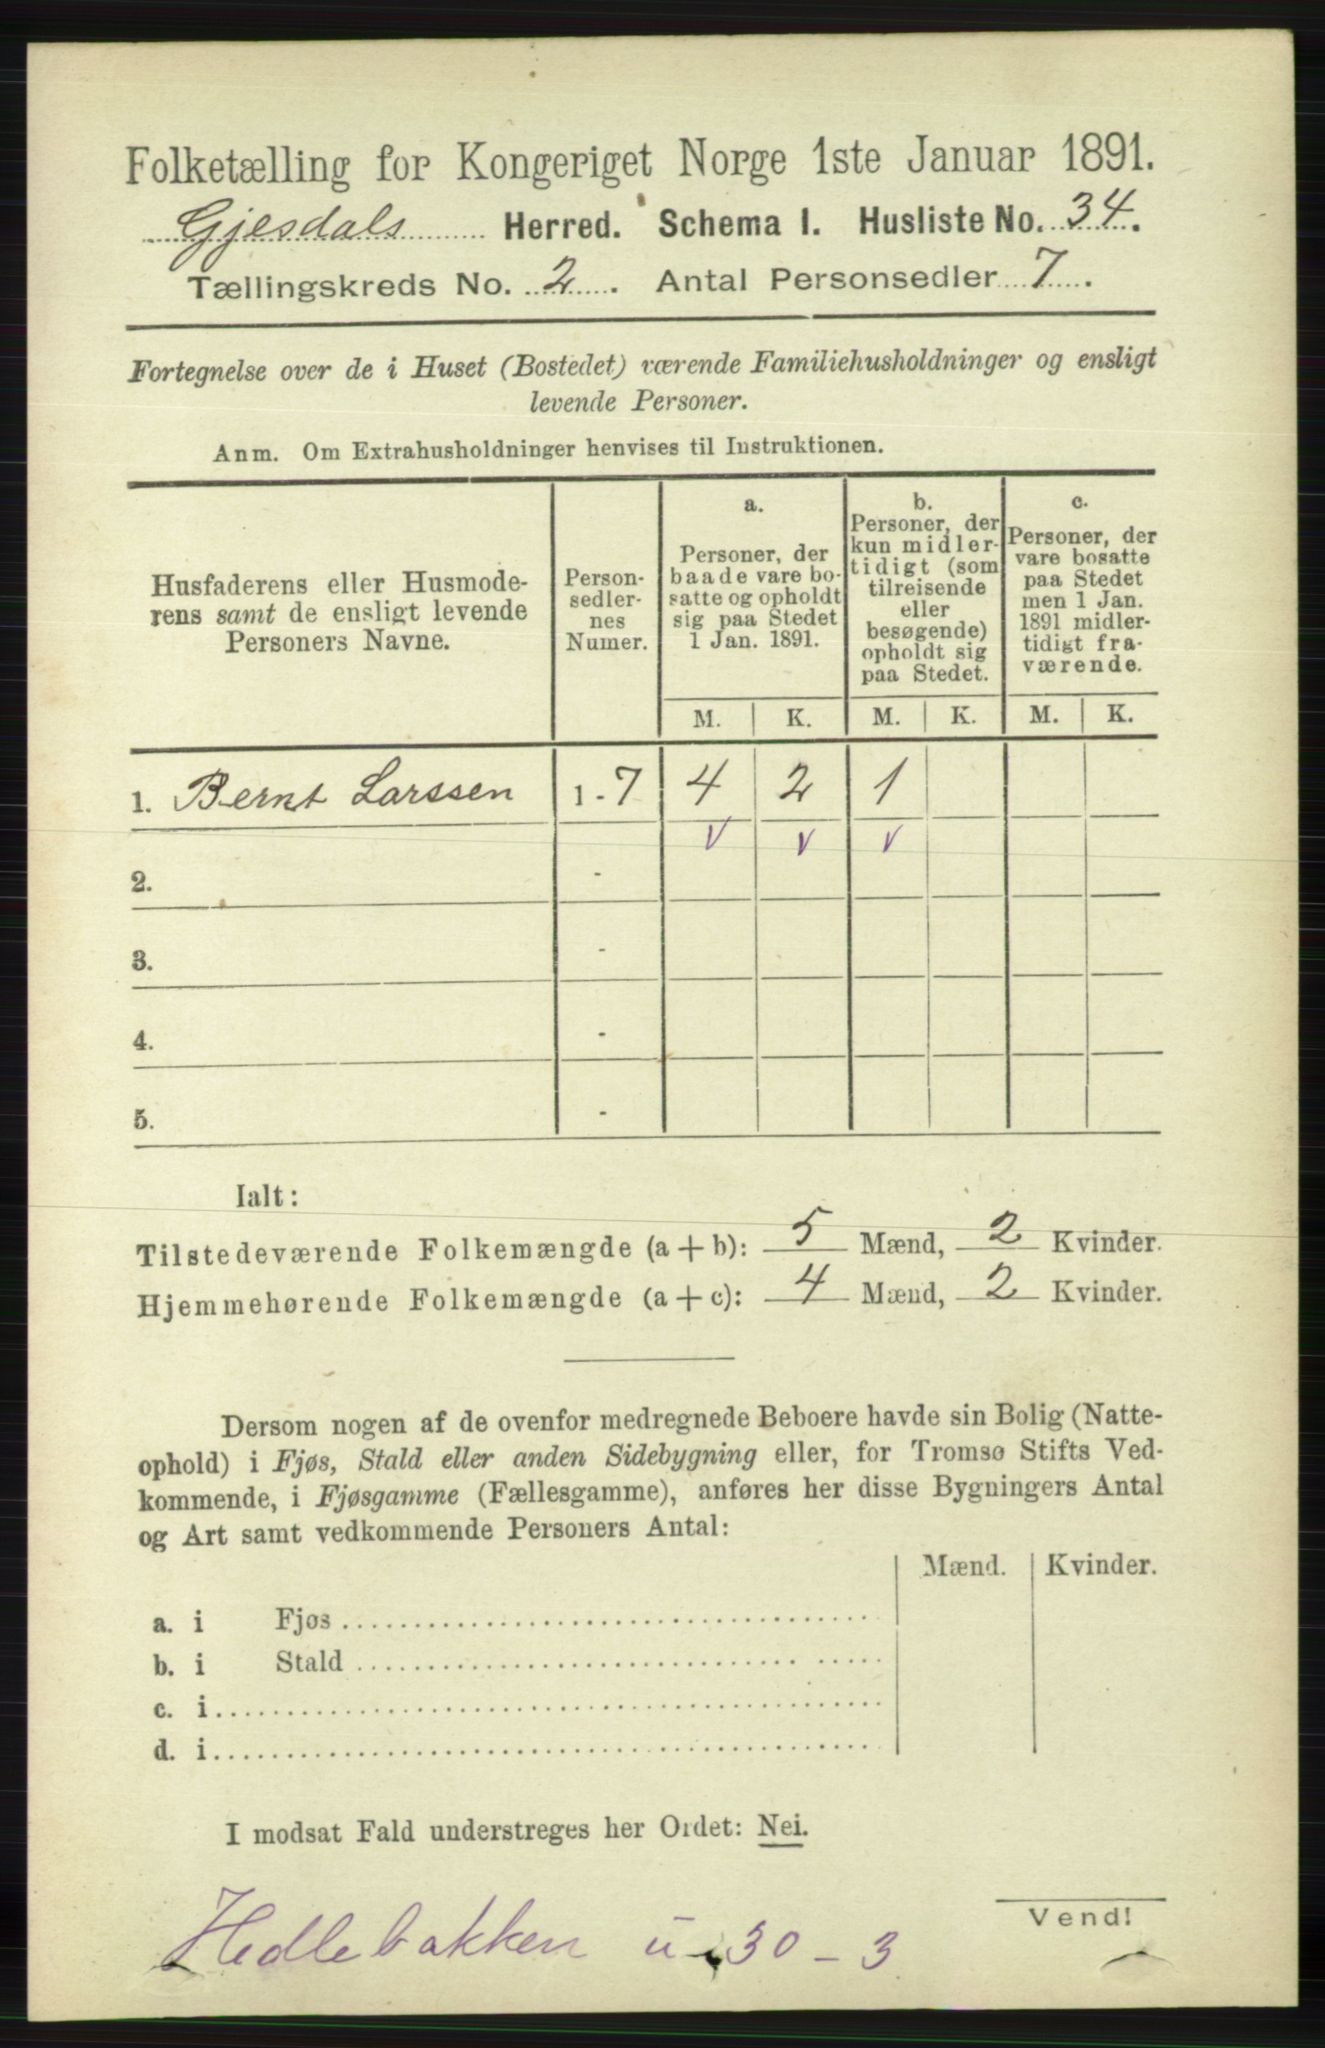 Folketælling for Kongeriget Norge 1ste Januar 1891.
Gjesdals Herred. Schema I. Husliste No. 34.
Tællingskreds No. 2. Antal Personsedler 7.
Fortegnelse over de i Huset (Bostedet) værende Familiehusholdninger og ensligt
levende Personer.
Anm. Om Extrahusholdninger henvises til Instruktionen.
Husfaderens eller Husmode-
rens samt de ensligt levende
Personers Navne.
Person-
sedler-
nes
Numer.
a.
Personer, der
baade vare bo-
satte og opholdt
sig paa Stedet
1 Jan. 1891.
b.
Personer, der
kun midler-
tidigt (som
tilreisende
eller
besøgende)
opholdt sig
paa Stedet.
c.
Personer, der
vare bosatte
paa Stedet
men 1 Jan.
1891 midler-
tidigt fra-
værende.
M. K. M. K. M. K.
1. Bernt Larssen 1 - 7 4 2 1
v v v
2. -
3. -
4. -
5. -
Ialt:
Tilstedeværende Folkemængde (a + b): 5 Mænd, 2 Kvinder.
Hjemmehørende Folkemængde (a + c): 4 Mænd, 2 Kvinder.
Dersom nogen af de ovenfor medregnede Beboere havde sin Bolig (Natte-
ophold) i Fjøs, Stald eller anden Sidebygning eller, for Tromsø Stifts Ved-
kommende, i Fjøsgamme (Fællesgamme), anføres her disse Bygningers Antal
og Art samt vedkommende Personers Antal:
Mænd. Kvinder.
a. i Fjøs
b. i Stald
c. i
d. i
I modsat Fald understreges her Ordet: Nei.
Vend!
Hedlebakken u 30 - 3